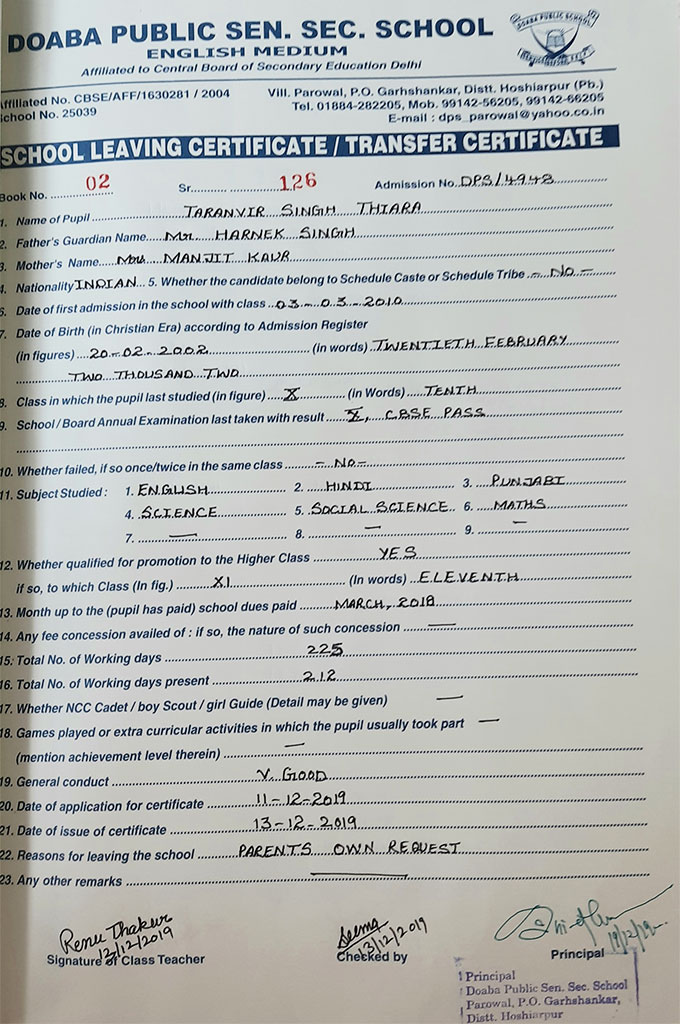 DOABA PUBLIC SEN. SEC. SCHOOL
ENGLISH MEDIUM
Affiliated to Central Board of Secondary Education Delhi
DOABA PUBLIC SCHOOL
Affiliated No. CBSE/AFF/1630281 / 2004
School No. 25039
Vill. Parowal, P.O. Garhshankar, Distt. Hoshiarpur (Pb.)
Tel. 01884-282205, Mob. 99142-56205, 99142-66205
E-mail : dps_parowal@yahoo.co.in
SCHOOL LEAVING CERTIFICATE / TRANSFER CERTIFICATE
Book No. 02 Sr. 126 Admission No. DPS/4948
1. Name of Pupil TARANVIR SINGH THIARA
2. Father's Guardian Name Mr. HARNEK SINGH
3. Mother's Name Mrs MANJIT KAUR
4. Nationality INDIAN 5. Whether the candidate belong to Schedule Caste or Schedule Tribe - No -
6. Date of first admission in the school with class 03-03-2010
7. Date of Birth (in Christian Era) according to Admission Register
(in figures) 20-02-2002 (in words) TWENTIETH FEBRUARY
TWO THOUSAND TWO
8. Class in which the pupil last studied (in figure) X (in Words) TENTH
9. School / Board Annual Examination last taken with result X, CBSE PASS
10. Whether failed, if so once/twice in the same class - No -
11. Subject Studied : 1. ENGLISH 2. HINDI 3. PUNJABI
4. SCIENCE 5. SOCIAL SCIENCE 6. MATHS
7. — 8. — 9. —
12. Whether qualified for promotion to the Higher Class YES
if so, to which Class (In fig.) XI (In words) ELEVENTH
13. Month up to the (pupil has paid) school dues paid MARCH, 2018
14. Any fee concession availed of : if so, the nature of such concession —
15: Total No. of Working days 225
16. Total No. of Working days present 212
17. Whether NCC Cadet / boy Scout / girl Guide (Detail may be given) —
18. Games played or extra curricular activities in which the pupil usually took part —
(mention achievement level therein) —
19. General conduct V. GOOD
20. Date of application for certificate 11-12-2019
21. Date of issue of certificate 13-12-2019
22. Reasons for leaving the school PARENTS OWN REQUEST
23. Any other remarks —
Renu Thakur
13/12/2019
Signature of Class Teacher
Seema
13/12/2019
Checked by
Principal
Principal
Doaba Public Sen. Sec. School
Parowal, P.O. Garhshankar,
Distt. Hoshiarpur